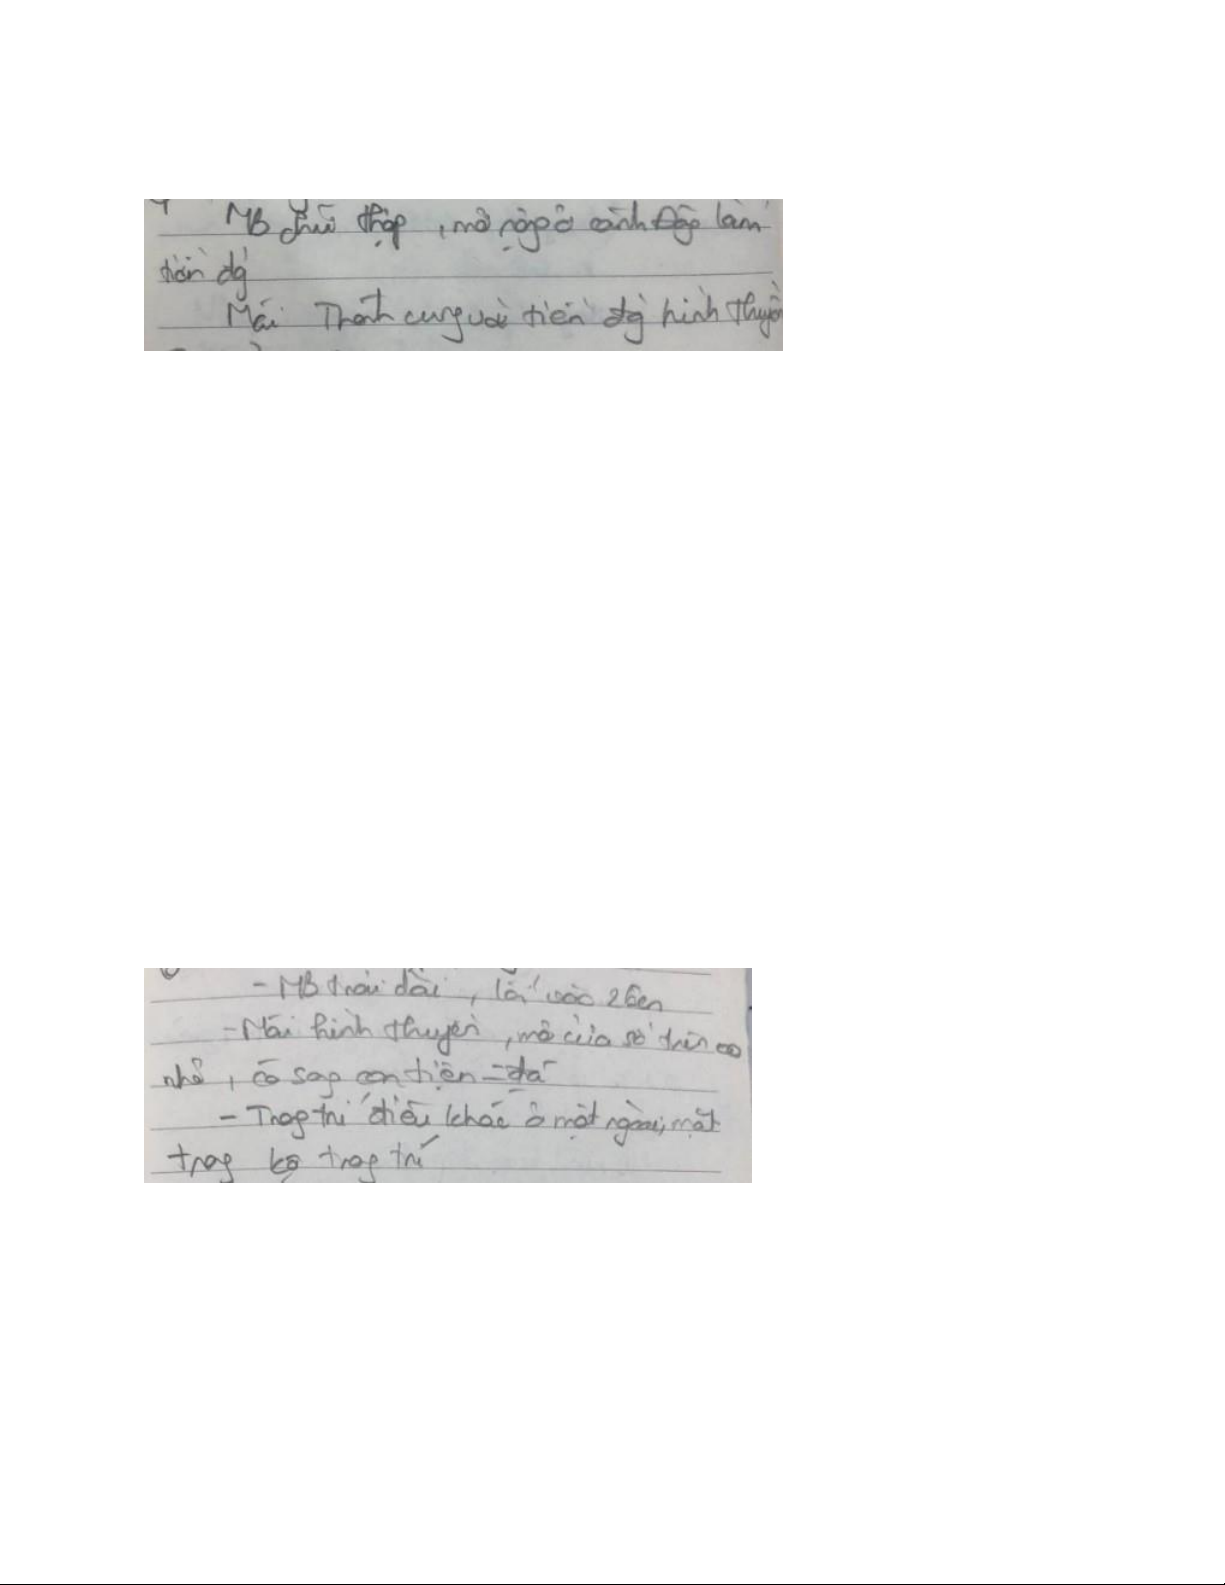 MB chữ thập , mở rộng ở cánh Đông làm
tiền đg
Mái: Thánh cung và tiền đg hình thuyền
- MB trải dài , lối vào 2 bên
- Mái hình thuyền , mở cửa sổ trên
nhỏ , có sog con tiện = đá
- Trag trí điêu khắc ở mặt ngoài, mặt
trog ko trag trí